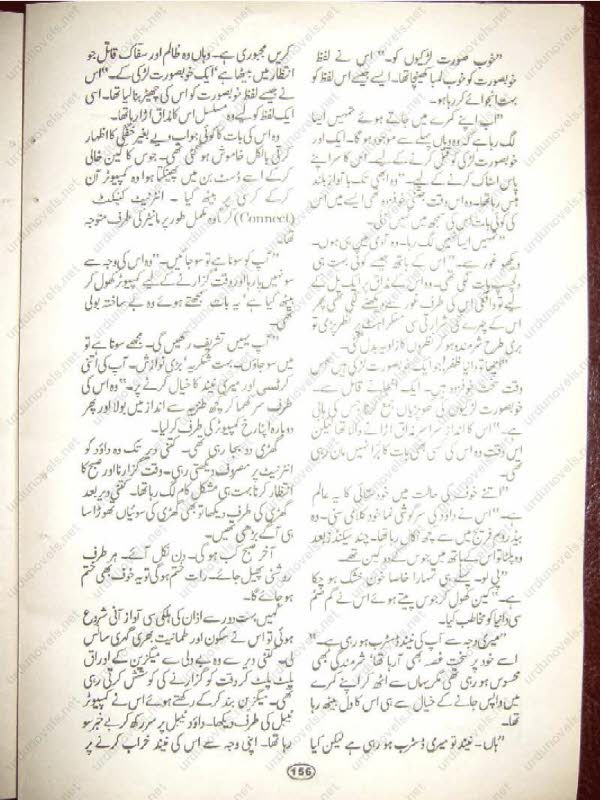 "خوب صورت لڑکیوں کو۔" اس نے لفظ
خوبصورت کو خوب لمبا کھینچا تھا۔ ایسے جیسے اس لفظ کو
بہت انجوائے کر رہا ہو۔
"اب اپنے کمرے میں جاتے ہوئے تمہیں ایسا
لگ رہا ہے کہ وہ وہاں پہلے سے موجود ہو گا۔ ایک اور
خوبصورت لڑکی کو قتل کرنے کے لیے۔
پاس کرنے کے لیے۔" وہ ابھی تک با آواز بلند
ہنس رہا تھا۔
کی کوئی بات اس کی سمجھ میں نہیں
"تمہیں ایسا نہیں لگ رہا۔ وہ آدمی میں ہی ہوں۔
دیکھو غور سے۔" اس کے ہاتھ جیسے کوئی بہت ہی
دلچسپ بات لگی تھی۔ وہ اس کے مذاق پر ایک پل کے
لیے تو واقعی اس کی طرف غور سے دیکھنے لگی تھی پھر
اس کے چہرے کی شرارتی سی مسکراہٹ پر نظر پڑی تو
بری طرح شرمندہ ہو کر نظروں کا زاویہ بدل گئی۔
"اچھا تو دانیا ظفر! جو ایک خوبصورت لڑکی ہیں اس
وقت سخت خوفزدہ ہیں۔ ایک قاتل سے۔
خوبصورت لڑکیوں کی کھوپڑیاں جمع کرنا جس کی ہابی
ہے۔" اس کا انداز سراسر مذاق اڑانے والا تھا لیکن
اس وقت وہ اس کی کسی بھی بات کا برا نہیں مان رہی
تھی۔
"اتنے خوف کی حالت میں خود ستائی کا یہ عالم
ہے۔" اس نے داؤد کی سرگوشی نما خود کلامی سنی۔ وہ
بیڈ روم فریج میں سے کچھ نکال رہا تھا۔ چند سیکنڈز بعد
وہ پلٹا تو اس کے ہاتھ میں جوس کے دو کین تھے۔
"پی لو۔ ایسے ہی تمہارا خاصا خون خشک ہو چکا
ہے۔" کین کھول کر جوس پیتے ہوئے اس نے گم صم
سی دانیا کو مخاطب کیا۔
"میری وجہ سے آپ کی نیند ڈسٹرب ہو رہی ہے۔"
اسے خود پر سخت غصہ بھی آ رہا تھا، شرمندگی بھی
محسوس ہو رہی تھی مگر یہاں سے اٹھ کر اپنے کمرے
میں واپس جانے کے خیال سے ہی اس کا دل بیٹھ رہا
تھا۔
"ہاں۔ نیند تو میری ڈسٹرب ہو رہی ہے لیکن کیا
کریں مجبوری ہے۔ وہاں وہ ظالم اور سفاک قاتل جو
انتظار میں بیٹھا ہے، ایک خوبصورت لڑکی کے۔" اس
نے جیسے لفظ خوبصورت کو اس کی چھیڑ بنا لیا تھا۔ اسی
ایک لفظ کو لیے وہ مسلسل اس کا مذاق اڑا رہا تھا۔
وہ اس کی بات کا کوئی جواب دیے بغیر خفگی کا اظہار
کرتی بالکل خاموش ہو گئی تھی۔ جوس کا کین خالی
کر کے اسے ڈسٹ بن میں پھینکتا ہوا وہ کمپیوٹر آن
کر کے کرسی پر بیٹھ گیا۔ انٹرنیٹ کنیکٹ
(Connect) کرتا وہ مکمل طور پر مانیٹر کی طرف متوجہ
تھا۔
"آپ کو سونا ہے تو سو جائیں۔" وہ اس کی وجہ سے
سو نہیں پا رہا اور وقت گزارنے کے لیے کمپیوٹر کھول کر
بیٹھ گیا ہے، یہ بات سمجھتے ہوئے وہ بے ساختہ بولی
تھی۔
"آپ یہیں تشریف رکھیں گی۔ مجھے سونا ہے تو
میں سو جاؤں۔ بہت شکریہ، بڑی نوازش۔ آپ کی اتنی
کرٹسی اور میری نیند کا خیال کرنے پر۔" وہ اس کی
طرف سر گھما کر کچھ طنزیہ سے انداز میں بولا اور پھر
دوبارہ اپنا رخ کمپیوٹر کی طرف کر لیا۔
گھڑی دو بجا رہی تھی۔ کتنی دیر تک وہ داؤد کو
انٹرنیٹ پر مصروف دیکھتی رہی۔ وقت گزارنا اور صبح کا
انتظار کرنا بہت ہی مشکل کام لگ رہا تھا۔ کتنی دیر بعد
گھڑی کی طرف دیکھا تو بھی گھڑی کی سوئیاں تھوڑا سا
ہی آگے بڑھی تھیں۔
آخر صبح کب ہو گی۔ دن نکل آئے۔ ہر طرف
روشنی پھیل جائے۔ رات ختم ہو گی تو یہ خوف بھی ختم
ہو جائے گا۔
کہیں بہت دور سے اذان کی ہلکی سی آواز آنی شروع
ہوئی تو اس نے سکون اور طمانیت بھری گہری سانس
لی۔ کتنی دیر سے وہ بے دلی سے میگزین کے اوراق
پلٹ پلٹ کر وقت کو گزارنے کی کوشش کرتی رہی
تھی۔ میگزین بند کر کے رکھتے ہوئے اس نے کمپیوٹر
ٹیبل کی طرف دیکھا۔ داؤد ٹیبل پر سر رکھ کر بے خبر سو
رہا تھا۔ اپنی وجہ سے اس کی نیند خراب کرنے پر
156